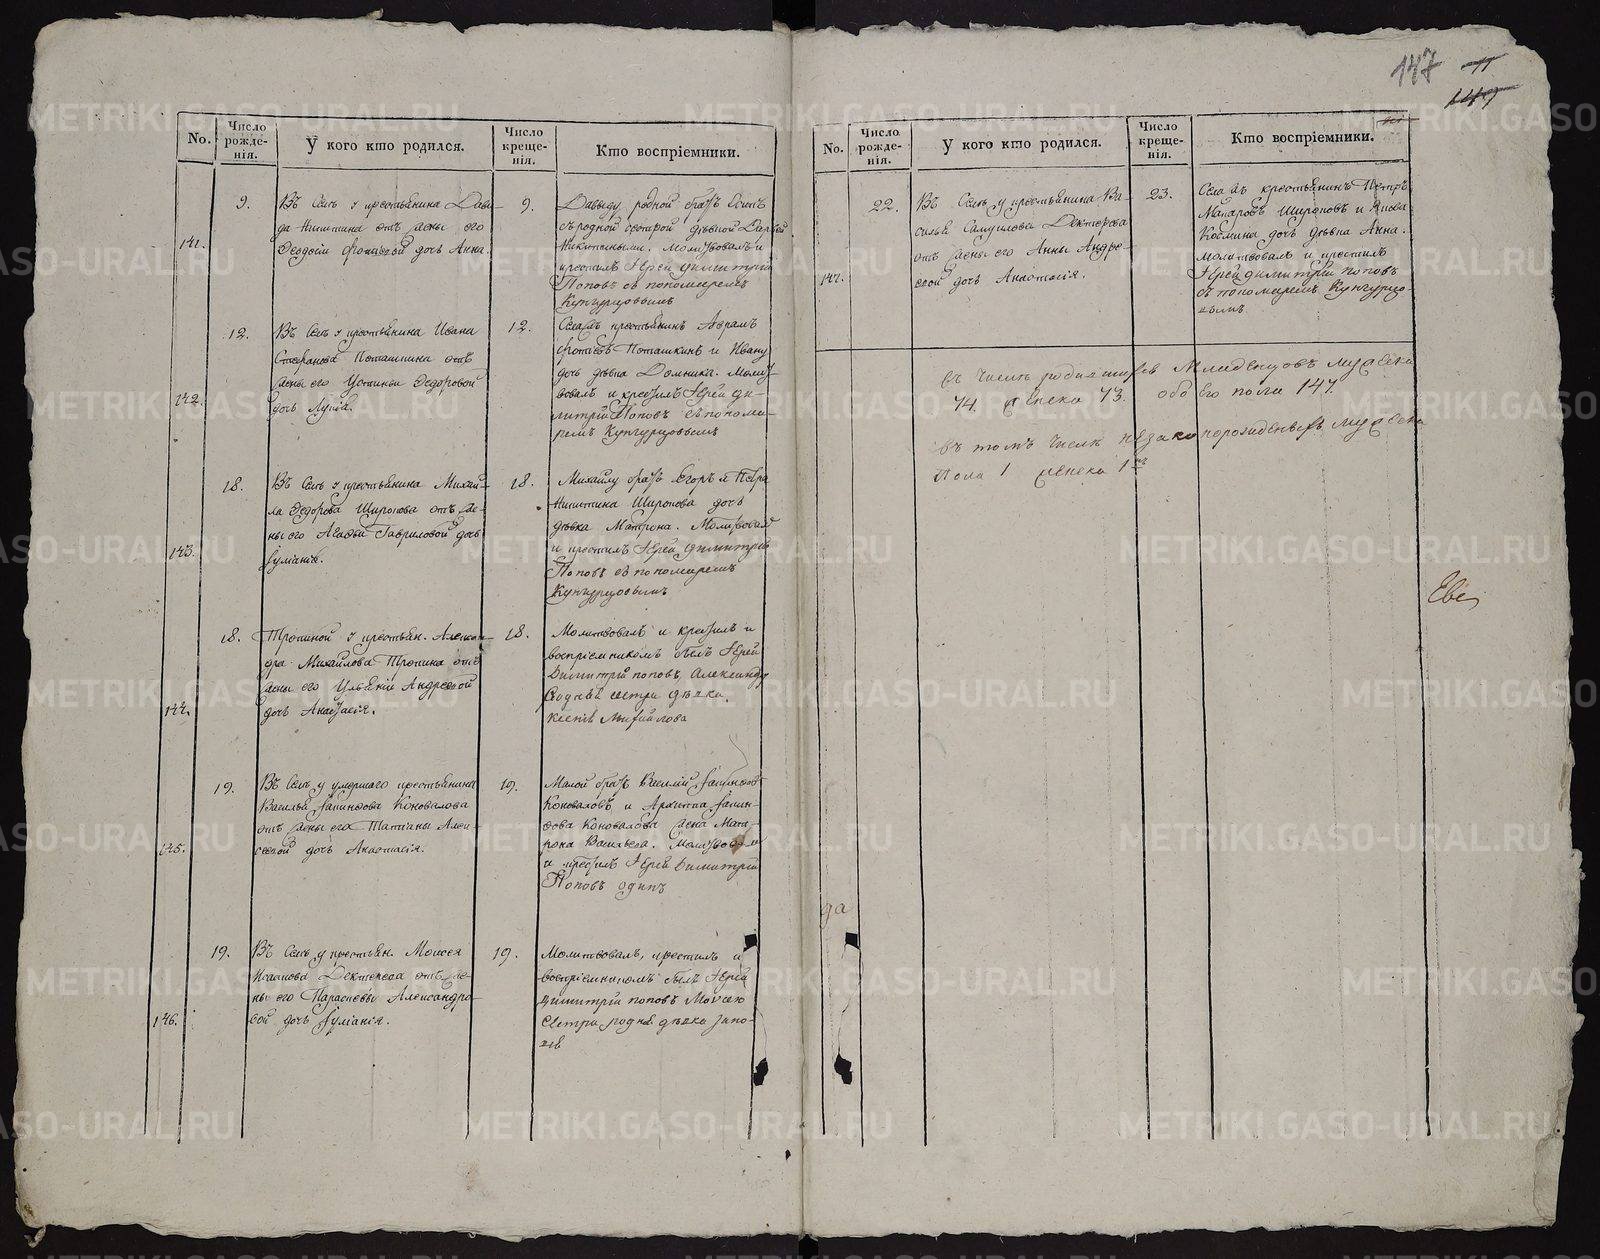 147 11
149
No.
Число рожде-нія.
У кого кто родился.
Число креще-нія.
Кто воспріемники.
141.
9.
Въ Селѣ у крестьянина Давы-
да Никитина отъ жены его
Ѳеодосіи дочь Анна.
9.
Давыду родной братъ Осипъ
съ родной сестрой дѣвкой Дарьей
Никитиными. молитвовалъ и
крестилъ Іерей Димитрій
Поповъ съ пономаремъ
Кунгурцовымъ
142.
12.
Въ Селѣ у крестьянина Ивана
Стефанова Поташкина отъ
жены его Устиньи Ѳедоровой
дочь
12.
крестьянинъ Абрамъ
Поташкинъ и Ивану
дочь дѣвка Домника. Молит-
вовалъ и крестилъ Іерей Ди-
митрій Поповъ съ понома-
ремъ Кунгурцовымъ
143.
18.
Въ Селѣ у крестьянина Михай-
ла Ѳедорова Широкова отъ же-
ны его Агафьи Гавриловой дочь
Іуліанія.
18.
Михайлу братъ Егоръ и Петра
Никитина Широкова дочь
дѣвка Матрона. Молитвовалъ
и крестилъ Іерей Димитрій
Поповъ съ пономаремъ
Кунгурцовымъ
144.
18.
Тропиной у крестьян. Алексан-
дра Михайлова Тропина отъ
жены его Ульяніи Андреевой
дочь Анастасія.
18.
Молитвовалъ и крестилъ и
воспріемникомъ былъ Іерей
Димитрій Поповъ, Александру
родная сестра дѣвка
Михайлова
145.
19.
Въ Селѣ у умершаго крестьянина
Василья Коновалова
отъ жены его Татіаны Алек-
сѣевой дочь Анастасія.
19.
Малой братъ Василій
Коноваловъ и
Коновалова жена Мат-
рона Васильева. Молитвовалъ
и крестилъ Іерей Димитрій
Поповъ одинъ
146.
19.
Въ Селѣ у крестьян. Моисея
Исакова Дектерева отъ же-
ны его Параскевы Александро-
вой дочь Іуліанія.
19.
Молитвовалъ, крестилъ и
воспріемникомъ былъ Іерей
Димитрій Поповъ Моисею
сестра родная дѣвка
No.
Число рожде-нія.
У кого кто родился.
Число креще-нія.
Кто воспріемники.
147.
22.
Въ Селѣ у крестьянина Ва-
силья Самуилова Дектерева
отъ жены его Анны Андре-
евой дочь Анастасія.
23.
Села крестьянинъ Петръ
Макаровъ Широковъ и
Космина дочь дѣвка Анна.
молитвовалъ и крестилъ
Іерей Димитрій Поповъ
съ пономаремъ Кунгурцо-
вымъ
въ числѣ родившихся Младенцовъ мужеска
74. женска 73. обоего пола 147.
въ томъ числѣ незаконнорожденныхъ мужеска
пола 1 женска 1
METRIKI.GASO-URAL.RU